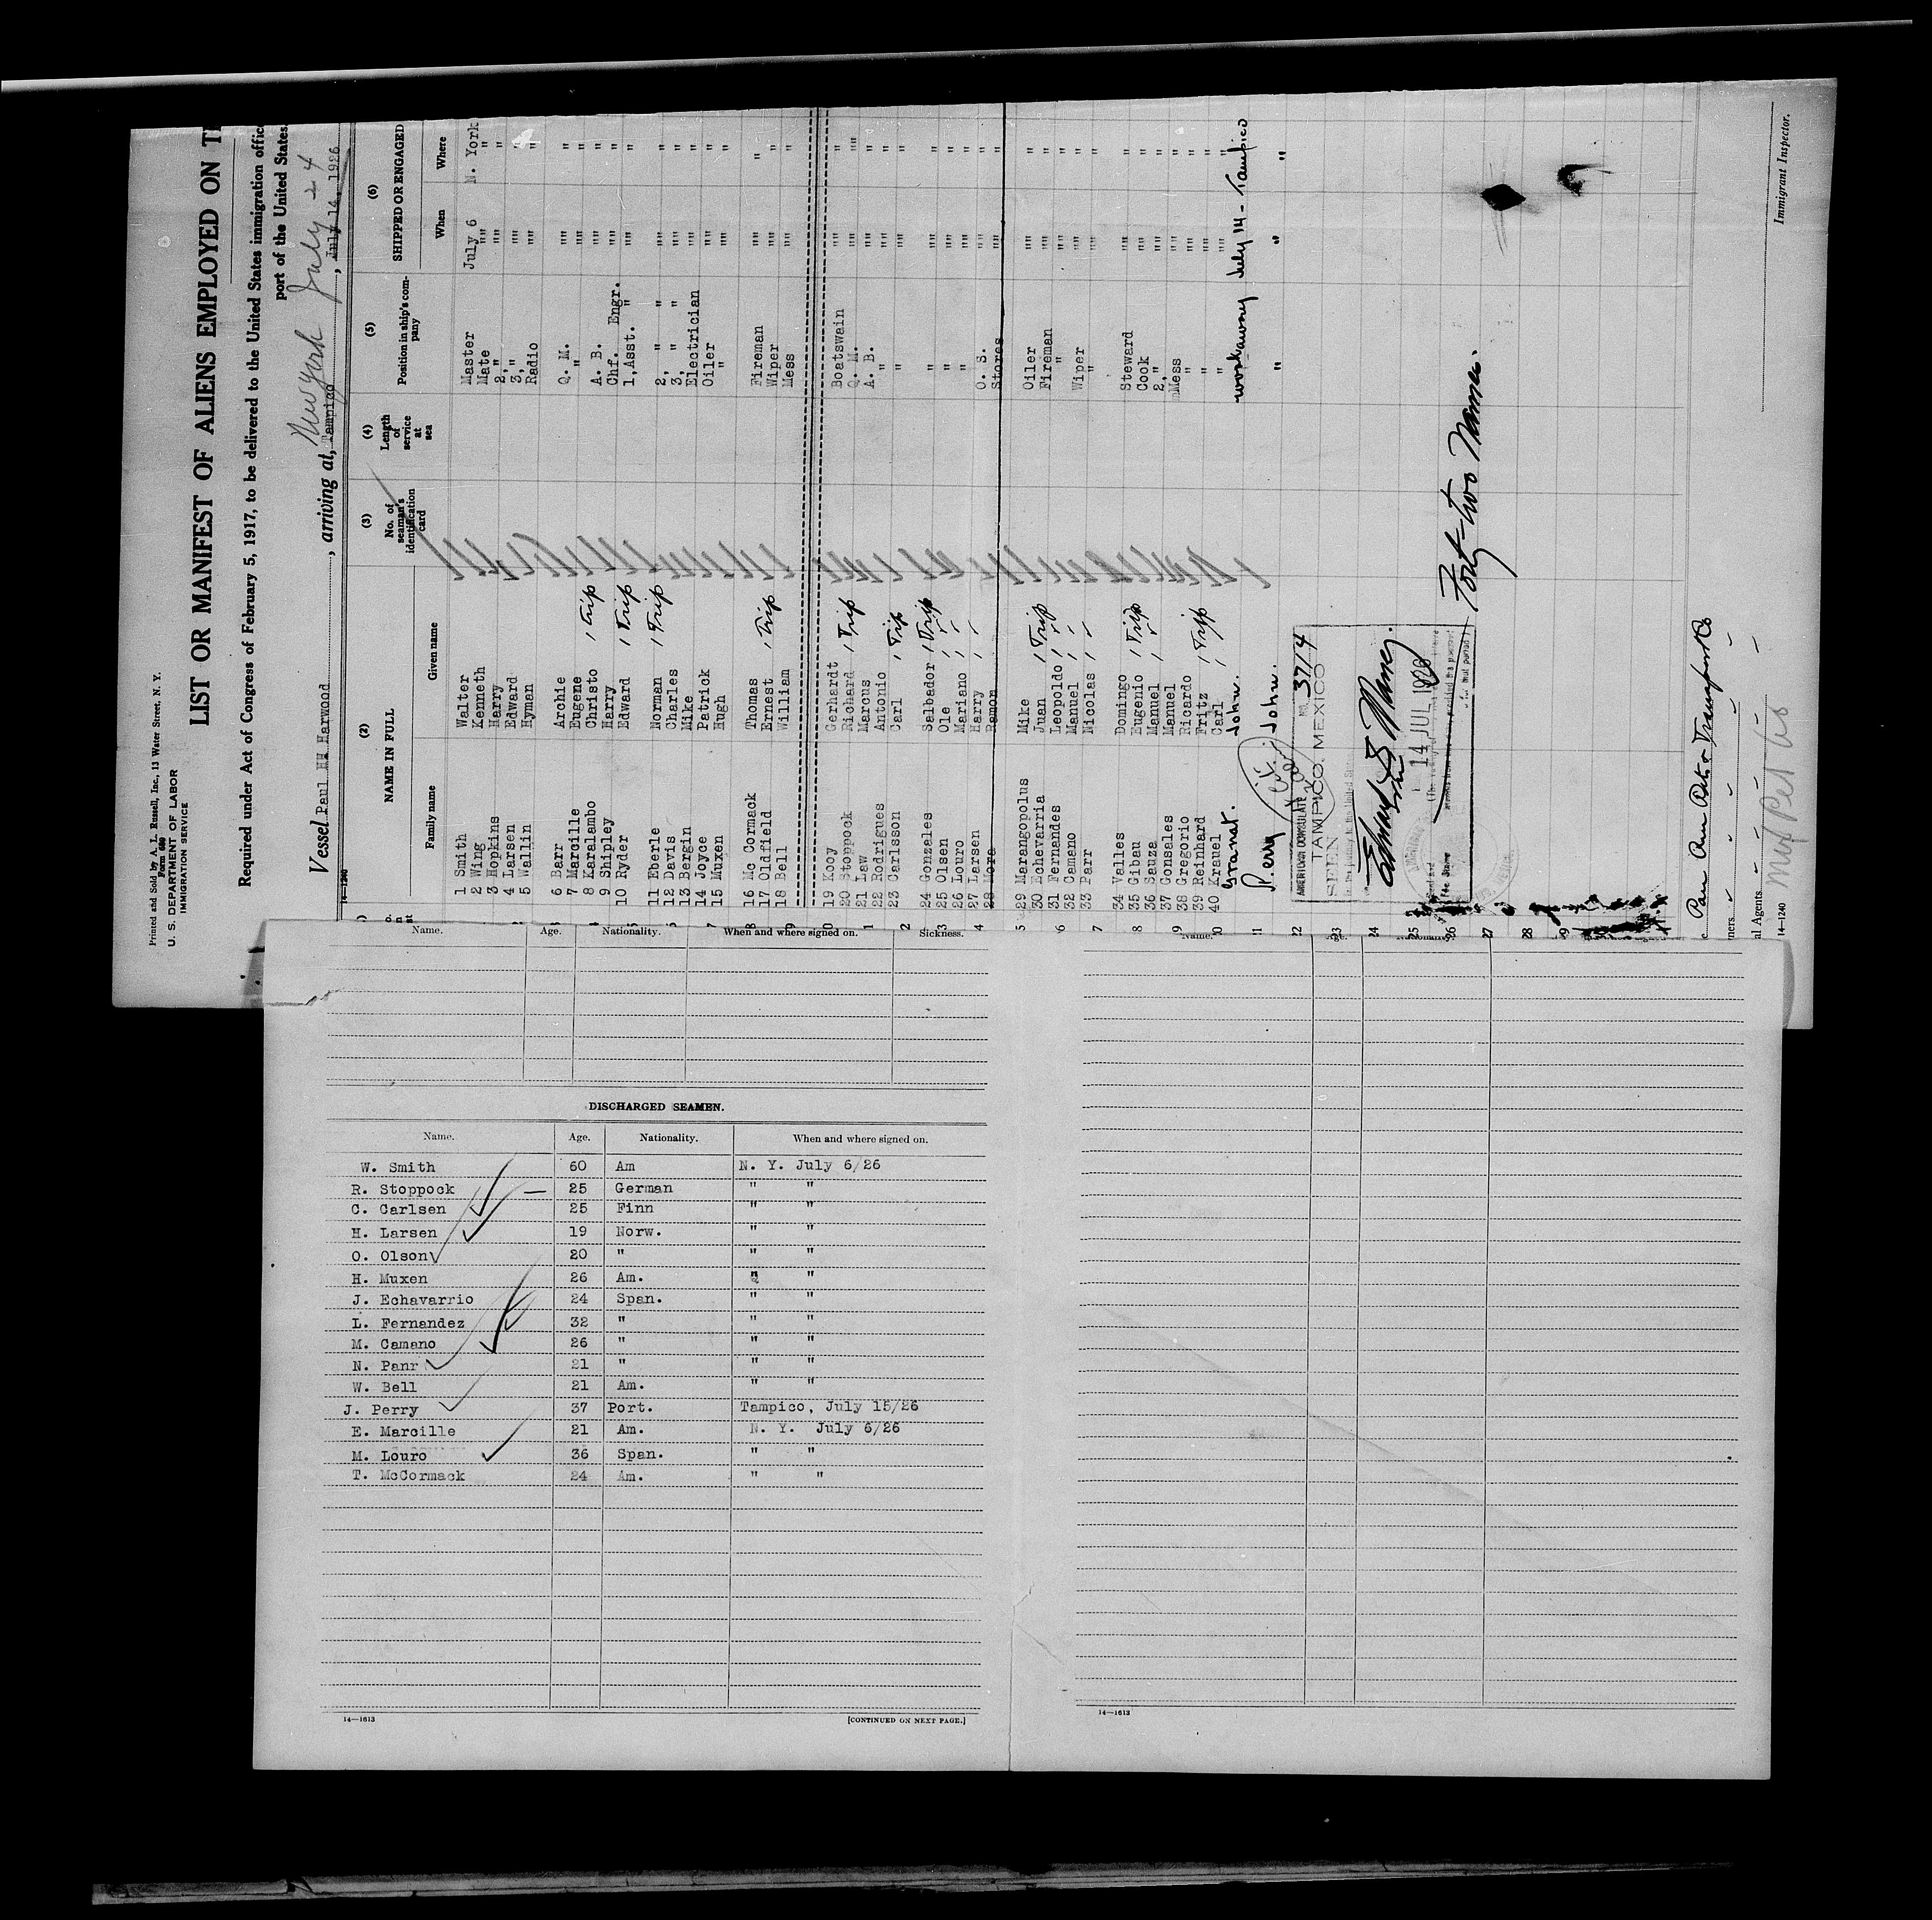 Printed and Sold by A. L. Russell, Inc., 13 Water Street, N. Y.
Form 680
U. S. DEPARTMENT OF LABOR
IMMIGRATION SERVICE
LIST OR MANIFEST OF ALIENS EMPLOYED ON
Required under Act of Congress of February 5, 1917, to be delivered to the United States immigration
port of the United States
New York July 24
Vessel Paul HH Harwood, arriving at, Tampico, July 14, 1926
14-1240
(2) (3) (4) (5) (6)
NAME IN FULL No. of seaman's identification card Length of service at sea Position in ship's company SHIPPED OR ENGAGED
Family name Given name When Where
1 Smith Walter Master July 6 N. York
2 Wing Kenneth Mate "" "
3 Hopkins Harry 2," "" "
4 Larsen Edward 3," "" "
5 Wallin Hyman Radio "" "
6 Barr Archie Q. M. "" "
7 Marcille Eugene " "" "
8 Karalambo Christo 1 Trip A. B. "" "
9 Shipley Harry Chf. Engr. "" "
10 Ryder Edward 1 Trip 1,Asst. " "" "
11 Eberle Norman 1 Trip 2, " " "" "
12 Davis Charles 3, " " "" "
13 Bergin Mike Electrician "" "
14 Joyce Patrick Oiler "" "
15 Muxen Hugh " "" "
16 Mc Cormack Thomas Fireman "" "
17 Oldfield Ernest 1 Trip Wiper "" "
18 Bell William Mess "" "
19 Kooy Gerhardt Boatswain "" "
20 Stoppock Richard 1 Trip Q. M. "" ""
21 Law Marcus A. B. "" "
22 Rodrigues Antonio " "" "
23 Carlsson Carl 1 Trip " "" "
24 Gonzales Salbador 1 Trip " "" "
25 Olsen Ole " "" "
26 Louro Mariano " "" "
27 Larsen Harry O. S. "" "
28 Mora Ramon Stores "" "
29 Marengopolus Mike Oiler "" "
30 Echevarria Juan 1 Trip Fireman "" "
31 Fernandes Leopoldo " "" "
32 Camano Manuel Wiper "" "
33 Parr Nicolas " "" "
34 Valles Domingo Steward "" "
35 Gibau Eugenio 1 Trip Cook "" "
36 Sauza Manuel 2," "" "
37 Gonsales Manuel Mess "" "
38 Gregorio Ricardo " "" "
39 Reinhard Fritz 1 Trip " "" "
40 Krauel Carl " "" "
Granat. John. workaway July 14 - Tampico
Perry John. " " "
AMERICAN CONSULATE No. 3714
TAMPICO, MEXICO
SEEN
14 JUL 1926
Forty-two Names.
Pan Am Pet & Transport Co
Mex Pet Co
14-1240
Immigrant Inspector.
Name. Age. Nationality. When and where signed on. Sickness.
DISCHARGED SEAMEN.
Name. Age. Nationality. When and where signed on.
W. Smith 60 Am N. Y. July 6/26
R. Stoppock 25 German " "
C. Carlsen 25 Finn " "
H. Larsen 19 Norw. " "
O. Olson 20 " " "
H. Muxen 26 Am. " "
J. Echavarrio 24 Span. " "
L. Fernandez 32 " " "
M. Camano 26 " " "
N. Panr 21 " " "
W. Bell 21 Am. " "
J. Perry 37 Port. Tampico, July 15/26
E. Marcille 21 Am. N. Y. July 6/26
M. Louro 36 Span. " "
T. McCormack 24 Am. " "
14—1613
[CONTINUED ON NEXT PAGE.]
14—1613